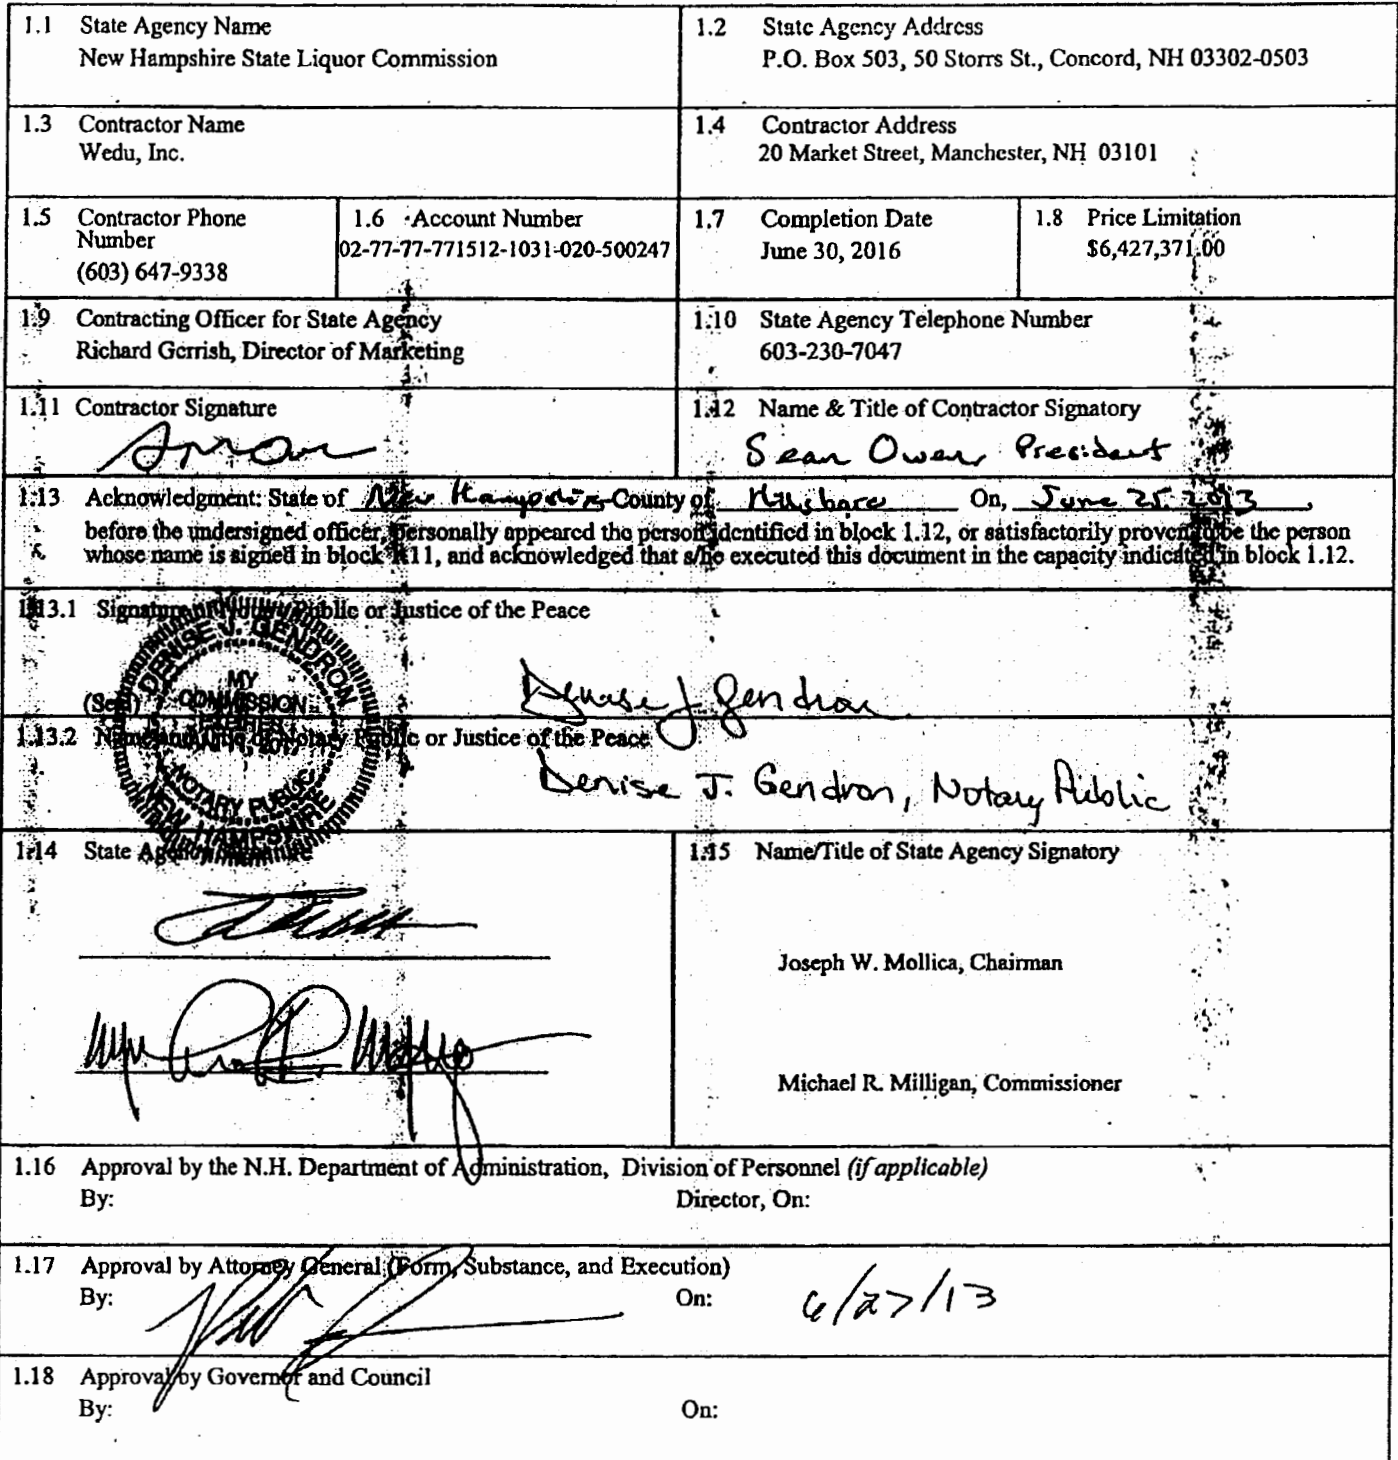 1.1 State Agency Name
New Hampshire State Liquor Commission
1.2 State Agency Address
P.O. Box 503, 50 Storrs St., Concord, NH 03302-0503
1.3 Contractor Name
Wedu, Inc.
1.4 Contractor Address
20 Market Street, Manchester, NH 03101
1.5 Contractor Phone
Number
(603) 647-9338
1.6 Account Number
02-77-77-771512-1031-020-500247
1.7 Completion Date
June 30, 2016
1.8 Price Limitation
$6,427,371.00
1.9 Contracting Officer for State Agency
Richard Gerrish, Director of Marketing
1.10 State Agency Telephone Number
603-230-7047
1.11 Contractor Signature
1.12 Name & Title of Contractor Signatory
Sean Owen President
1.13 Acknowledgment: State of New Hampshire County of Hillsboro On, June 25, 2013,
before the undersigned officer, personally appeared the person identified in block 1.12, or satisfactorily proven to be the person
whose name is signed in block 1.11, and acknowledged that s/he executed this document in the capacity indicated in block 1.12.
1.13.1 Signature of Notary Public or Justice of the Peace
DENISE J. GENDRON
MY
COMMISSION
EXPIRES
NOTARY PUBLIC
NEW HAMPSHIRE
(Seal)
Denise J Gendron
1.13.2 Name and Title of Notary Public or Justice of the Peace
Denise J. Gendron, Notary Public
1.14 State Agency
1.15 Name/Title of State Agency Signatory
Joseph W. Mollica, Chairman
Michael R. Milligan, Commissioner
1.16 Approval by the N.H. Department of Administration, Division of Personnel (if applicable)
By: Director, On:
1.17 Approval by Attorney General (Form, Substance, and Execution)
By: On: 6/27/13
1.18 Approval by Governor and Council
By: On: